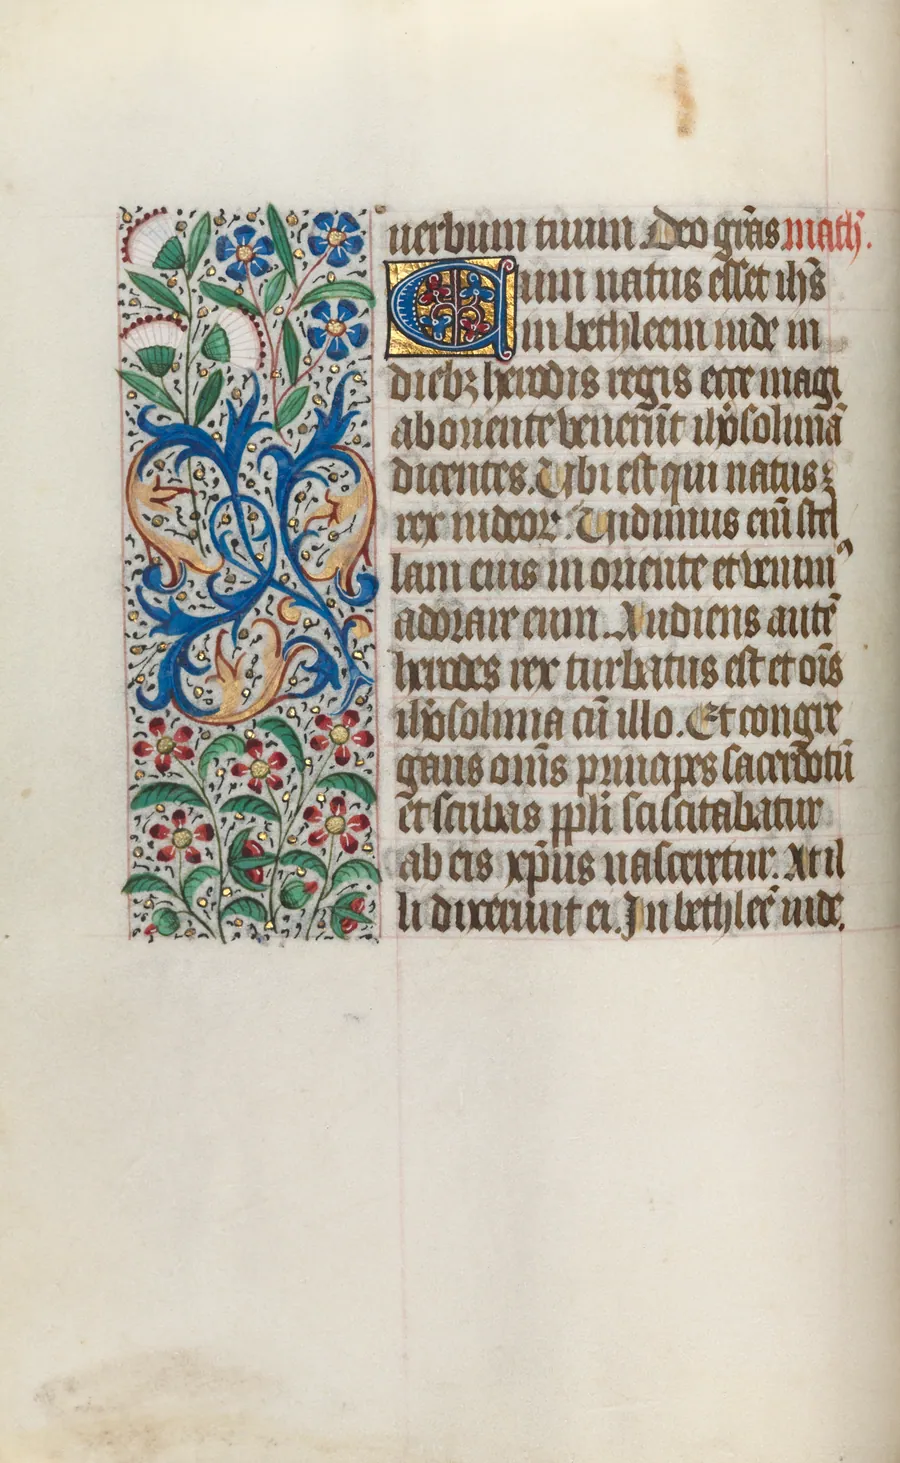 uerbum tuum. Deo gr̃as math̃.
Cum natus esset ih̃s
in bethleem iude in
diebꝫ herodis regis ecce magi
ab oriente venerũt ih̃rosolimã
dicentes. Ubi est qui natus ꝫ
rex iudeoꝝ. Vidimus em̃ stel
lam eius in oriente et venim᾿
adorare eum. Audiens autẽ
herodes rex turbatus est et om̃s
ih̃rosolima cũ illo. Et congre
gans om̃s principes sacerdotũ
et scribas pp̃li sciscitabatur
ab eis xp̃us nasceretur. At il
li dixerunt ei. In bethleẽ iude.